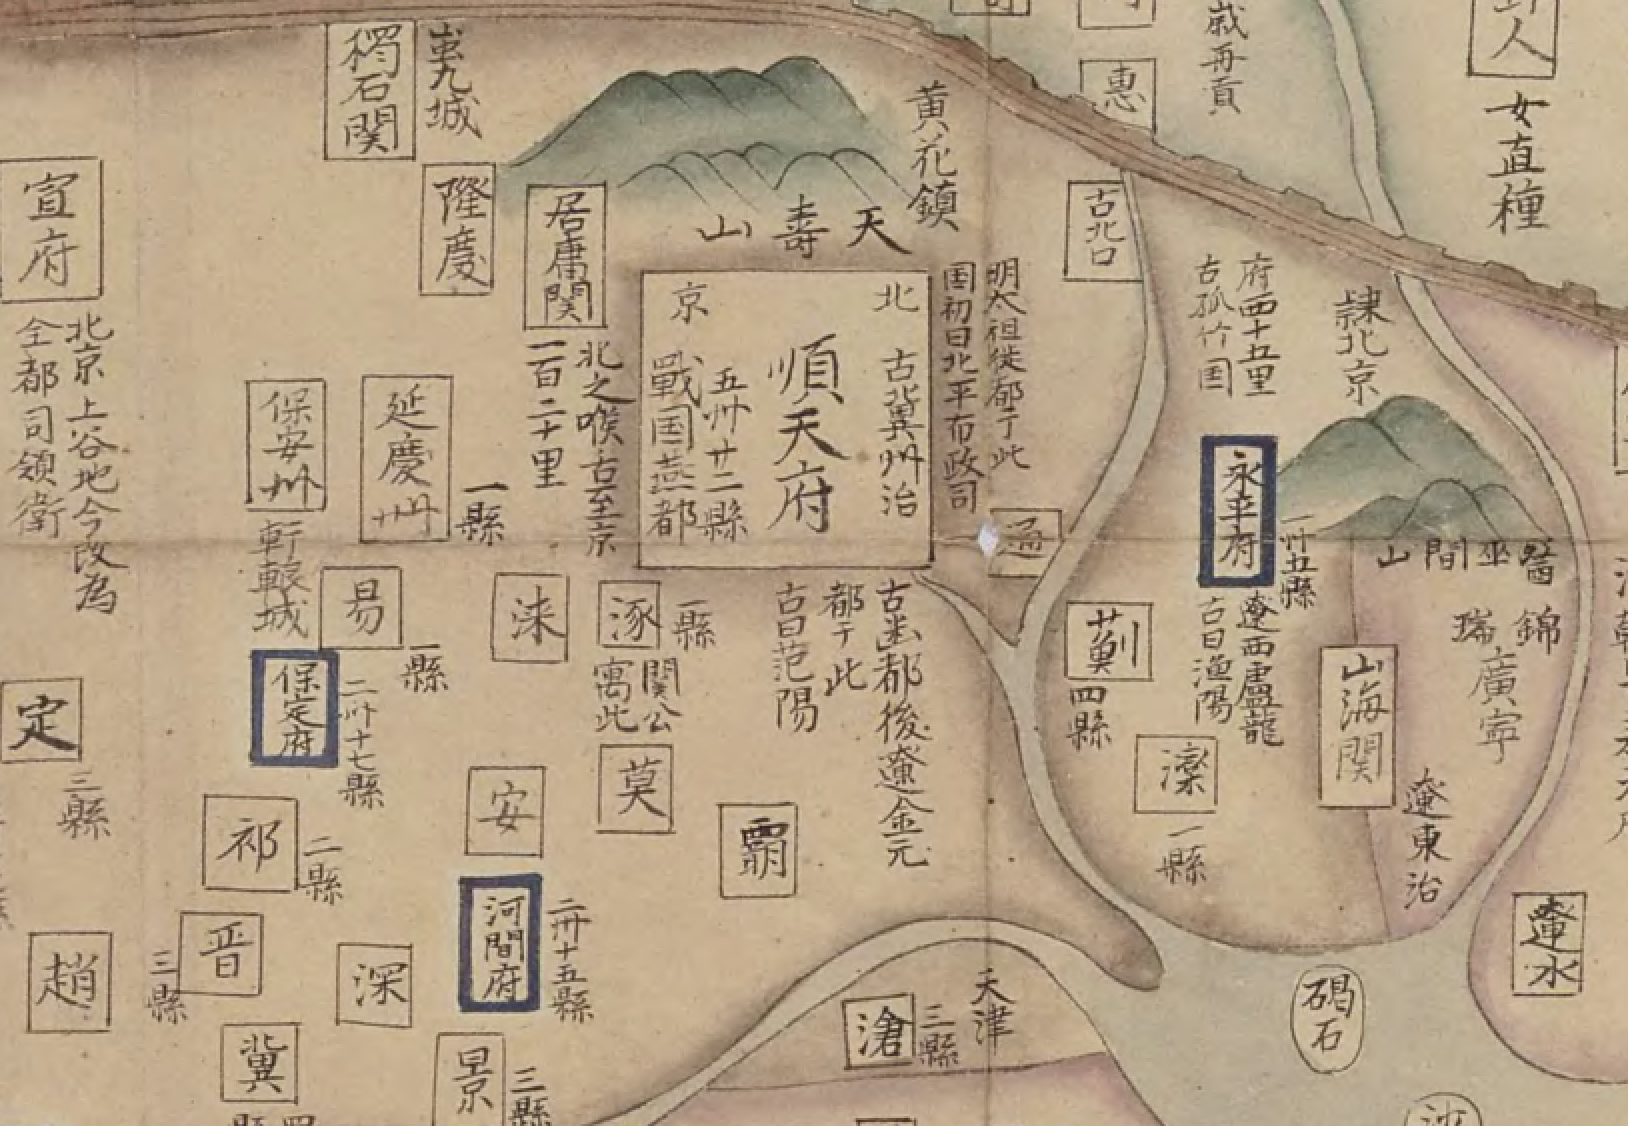 女直種
歲再貢
惠
黃花鎮
天壽山
古北口
隷北京
府西十五里
古孤竹国
永平府
一卅五縣
遼西盧龍
古曰漁陽
醫巫閭山
錦
瑞
廣寧
山海関
遼東治
遼水
碣石
薊
四縣
灤
一縣
明太祖徙都于此
国初曰北平布政司
通
北京
古冀州治
順天府
五州廿二縣
戰国燕都
古幽都後遼金元
都于此
古曰范陽
居庸関
北之喉古至京
一百二十里
隆慶
獨石関
九城
宣府
北京上谷地今改為
全都司領衛
延慶州
一縣
保安州
軒轅城
易
一縣
淶
涿
一縣
関公
寓此
保定府
二州十七縣
定
三縣
祁
二縣
安
莫
霸
河間府
二州十五縣
晋
三縣
深
趙
冀
四縣
景
三縣
滄
三縣
天津